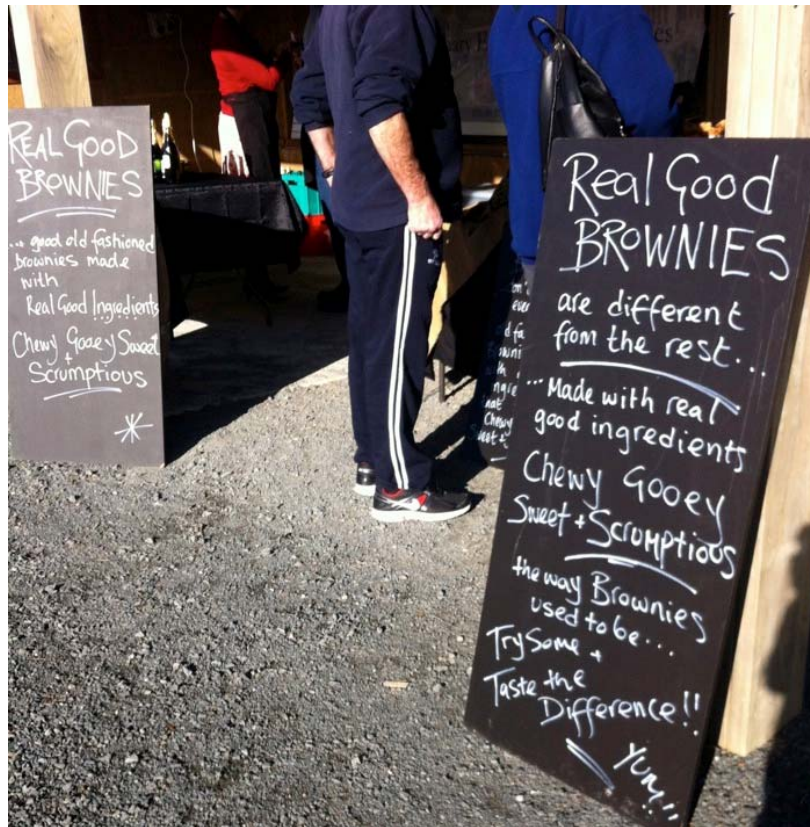 REAL GOOD
BROWNIES
... good old fashioned
Brownies made
with
Real Good Ingredients
Chewy Gooey Sweet
+
Scrumptious
Real Good
BROWNIES
are different
from the rest...
... Made with real
good ingredients
Chewy Gooey
Sweet + Scrumptious
the way Brownies
used to be...
Try Some +
Taste the
Difference!!
YUM!!